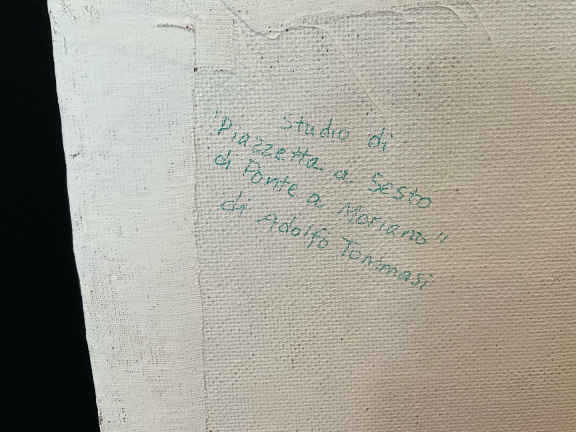 Studio di
"Piazzetta a Sesto
di Ponte a Moriano"
di Adolfo Tommasi